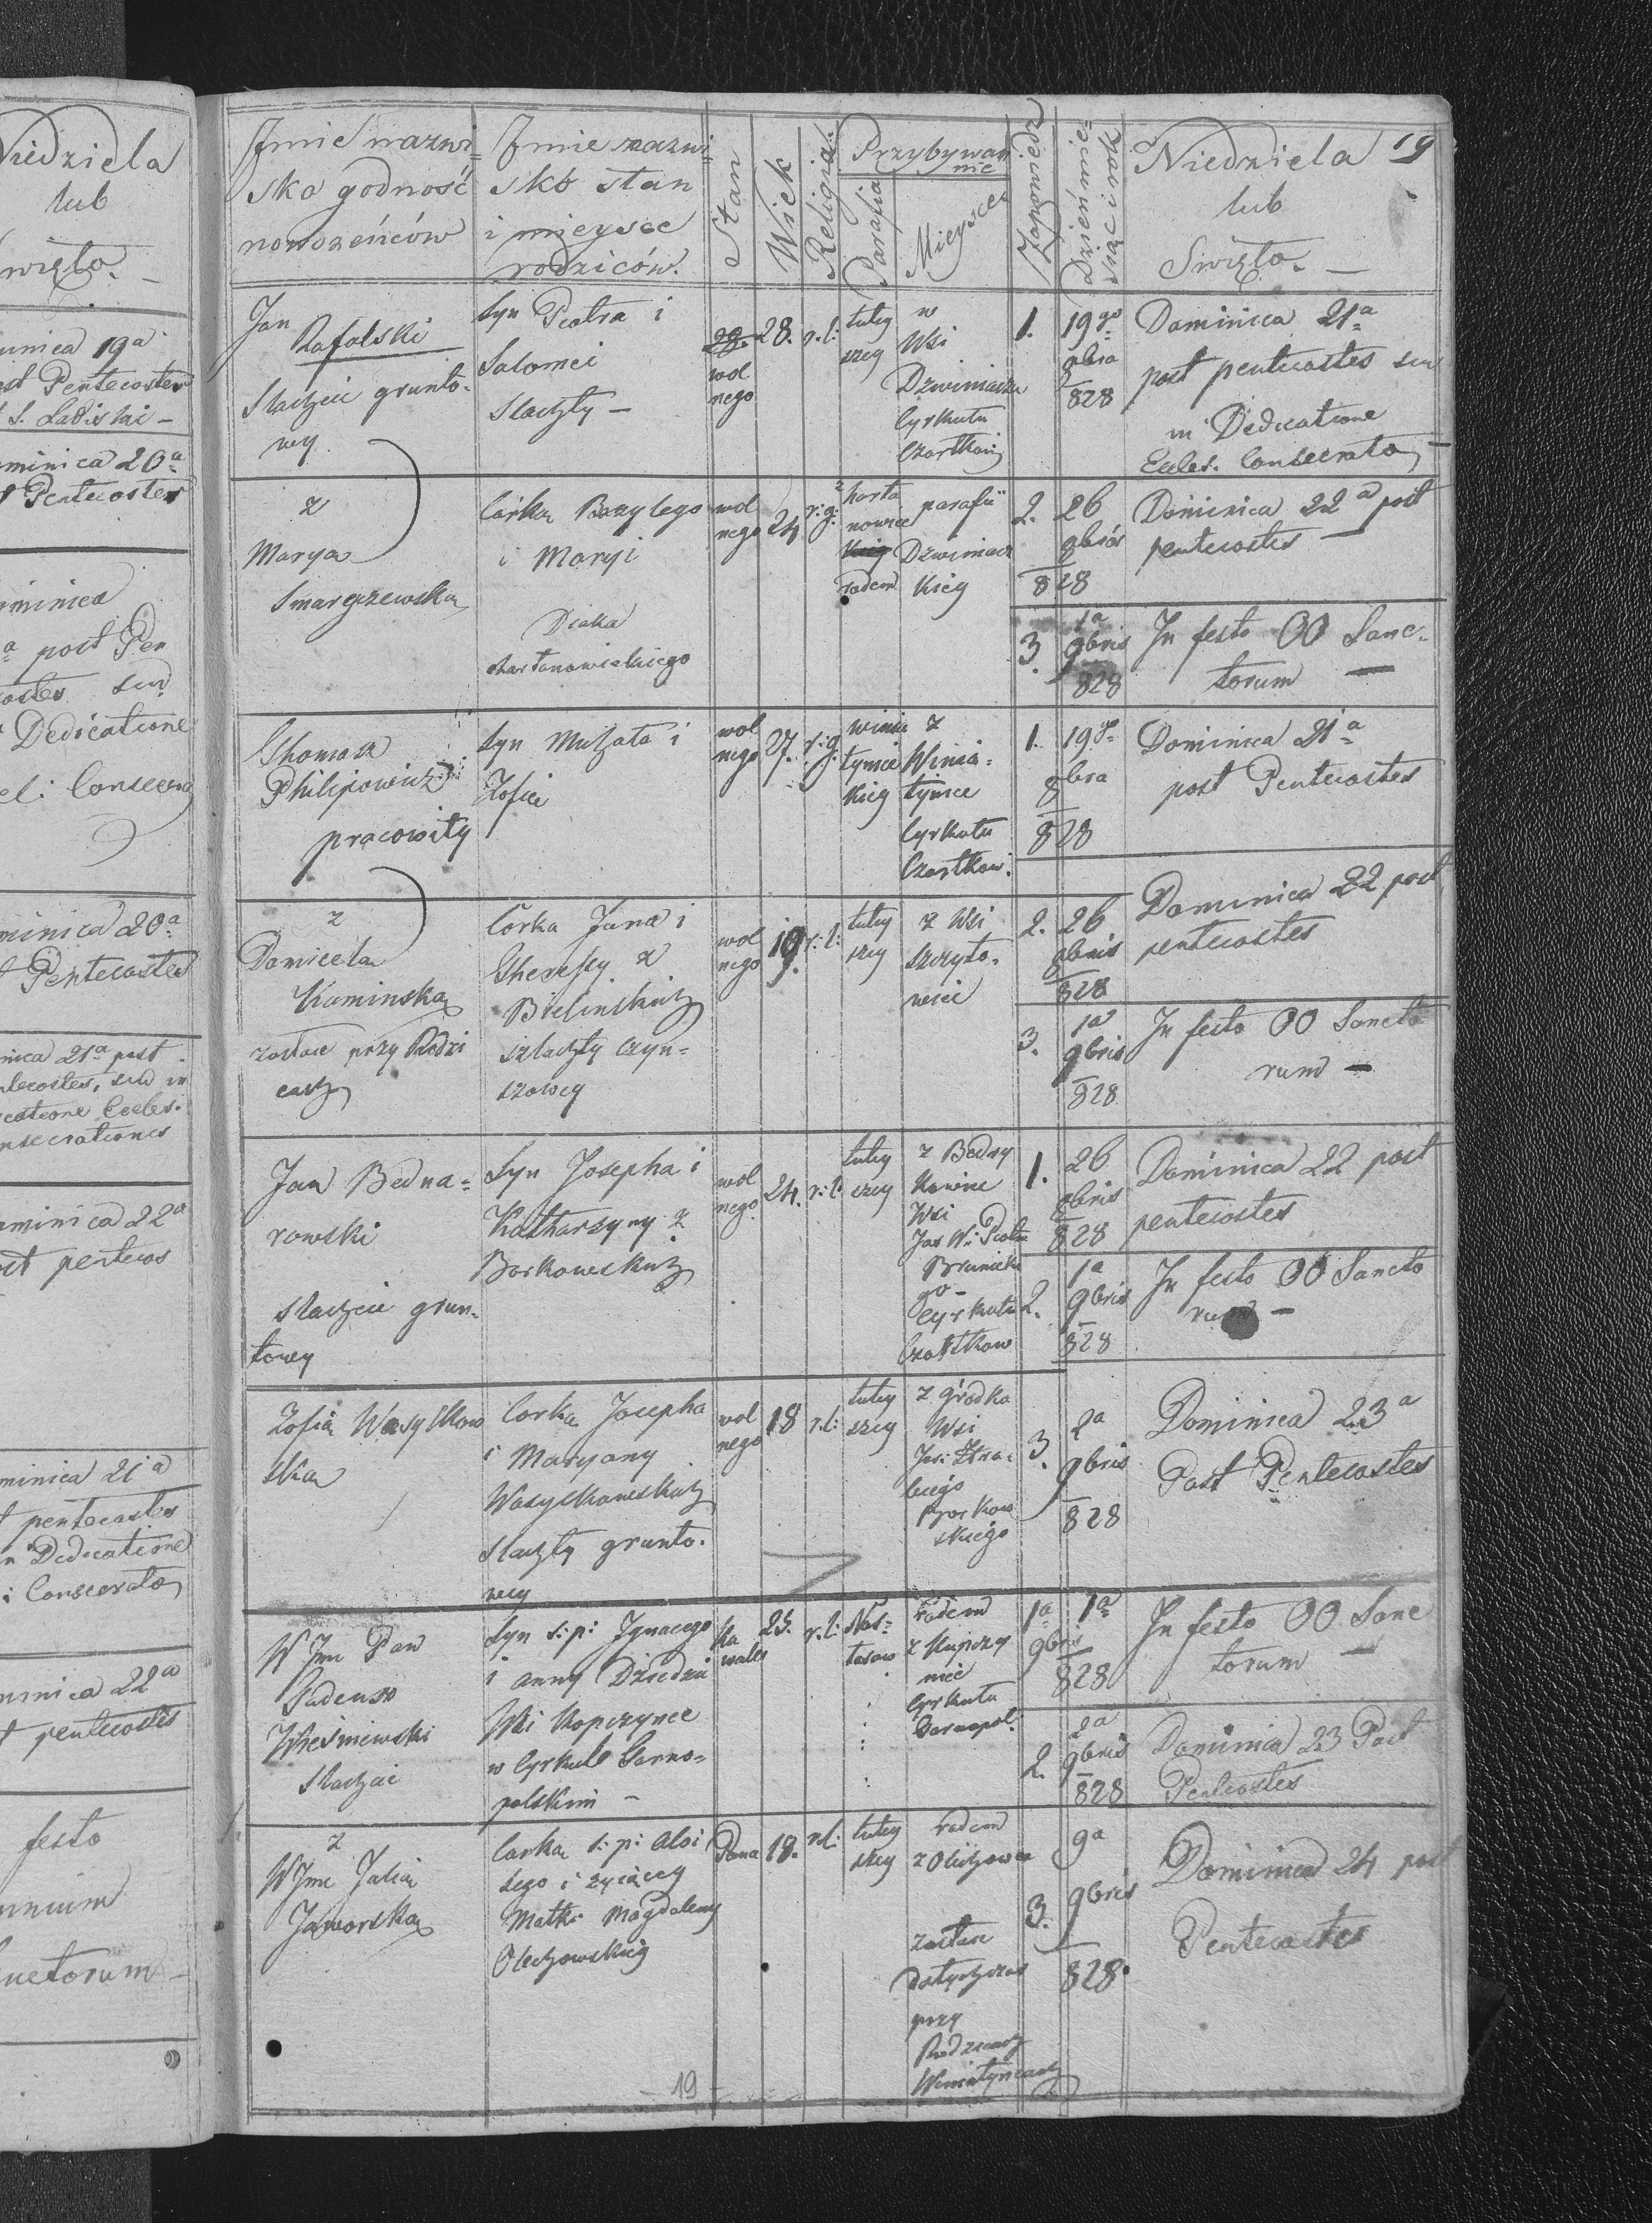 Niedziela
lub
święto. —
19a
post Pentecostes
S. Ladislai —
Dominica 20a
Pentecostes
Dominica
a post Pen
Dedicatione
Dominica 20a
Pentecostes
21a post
Pentecostes, seu in
Dedicatione Eccles.
Consecrationis
Dominica 22a
post pentecos
Dominica 21a
pentecostes
in Dedicatione
Consecrata
Dominica 22a
pentecostes
festo
Omnium
Sanctorum —
Jmie nazwi=
sko godność
nowożeńców
Jmie nazwi=
sko stan
i mieysce
rodziców.
Stan
Wiek
Religia
Przybywa
nie
Parafia
Mieysce
Zapowiedź
Dzień mie=
siąc i rok
Niedziela 19
lub
Swięto. —
Jan
Rafalski
Slachcic grunto-
wey
Syn Piotra i
Salomei
Slachty —
28.
wol
nego
28.
r: l:
tutey
szey
w
Wsi
Dzwiniaczu
Cyrkułu
Czortkow
1.
19go
8bra
828
Dominica 21a
post pentecostes seu
in Dedicatione
Eccles. Consecrata —
z
Marya
Smarczewska
Córka Bazylego
i Maryi
Diaka
chartanowieckiego
wol
nego
24
r: g:
z harta
nowiec
kiey
rodem
parafii
Dzwiniacz
kiey
2.
26
8bris
828
Dominica 22a post
pentecostes —
3.
1a
9bris
828
In festo OO Sanc-
torum —
Thomasz
Philipowicz
pracowity
Syn Michała i
Zofii
wol
nego
27.
r: g:
winia
tyniec
kiey
z
Winia=
tyniec
Cyrkułu
Czortkow:
1.
19go
8bra
828
Dominica 21a
post Pentecostes
z
Domicela
Kaminska
zostaie przy Rodzi
cach
Córka Jana i
Theresy z
Bielinskich
szlachty czyn=
szowey
wol
nego
19.
r: l:
tutey
szey
z Wsi
szczyto-
wiec
2.
26
8bris
828
Dominica 22 post
pentecostes
3.
1a
9bris
828
In festo OO Sancto
rum —
Jan Bedna=
rowski
Slachcic grun-
towey
Syn Josepha i
Katharzyny z
Borkowskich
wol
nego
24.
r: l:
tutey
szey
z Bedry
kowiec
Wsi
Jas W: Piotra
Brunicki
go —
Cyrkułu
Czortkow
1.
26
8bris
828
Dominica 22 post
pentecostes
2.
1a
9bris
828
In festo OO Sancto
rum —
Zofia Wasylkow
ska
Corka Josepha
i Maryany
Wasylkowskich
Slachty grunto-
wey
wol
nego
18
r: l:
tutey
szey
z Gródka
Wsi
Borkow
skiego
3.
2a
9bris
828
Dominica 23a
Post Pentecostes
W Jmc Pan
Tadeusz
Wiesniewski
Slachcic
Syn s: p: Jgnacego
i Anny Dziedzic
Wsi Kopczynce
w Cyrkule Tarno=
polskim —
ka
waler
25.
r: l:
Nas=
tasow
rodem
z Kupczy
niec
Cyrkułu
Tarnopol.
1a
9bris
1a
828
In festo OO Sanc
torum —
2.
2a
9bris
828
Dominica 23 Post
Pentecostes
z
W Jmc Julia
Jaworska
Corka s: p: Aloi
zego i zyiącey
Matki Magdaleny
Olechowskiey
Pana
18.
r: l:
tutey
szey
rodem
z Olichowca
zostaie
dotychczas
przy
Rodzicach
Winiatyncach
3.
9a
9bris
828.
Dominica 24 post
Pentecostes
— 19 —